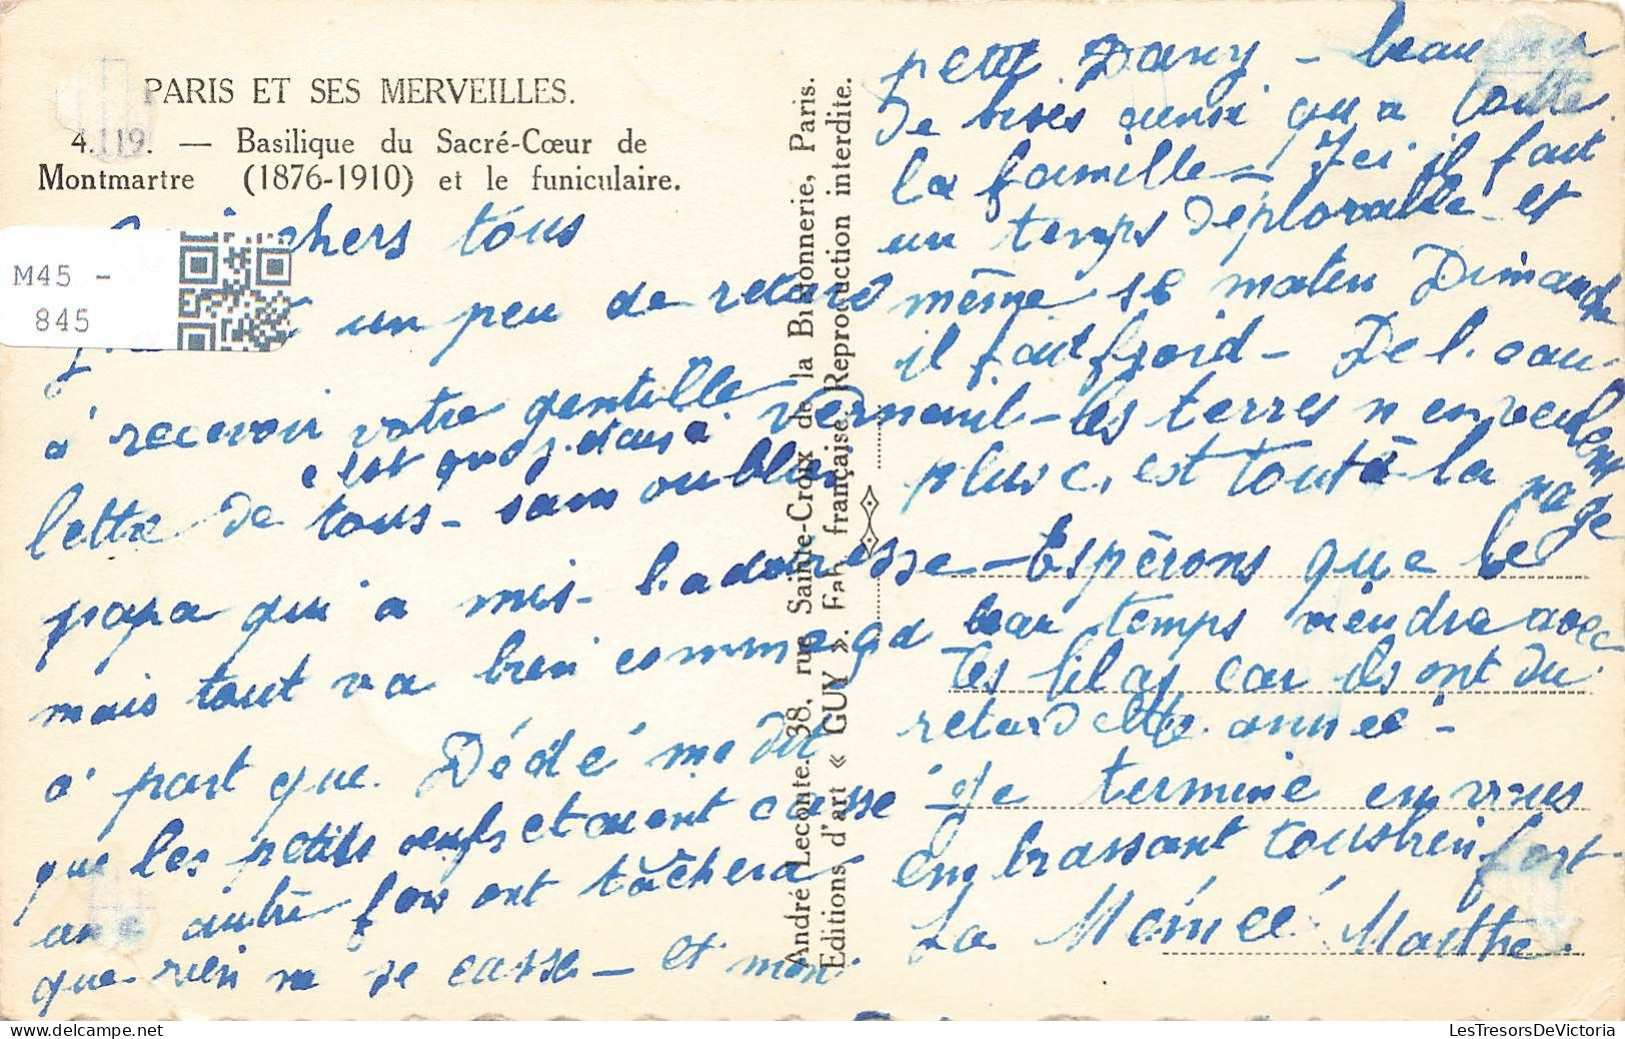 PARIS ET SES MERVEILLES.
4.119. — Basilique du Sacré-Cœur de
Montmartre (1876-1910) et le funiculaire.
M45 -
845
chers tous
un peu de retard
a recevoir votre gentille
c'est quoi j. étais à Verneuil
lettre de tous - sans oublier
papa qui a mis l.adresse
mais tout va bien comme ça
a part que Dédé me dit
que les petits oeufs etaient casse
une autre fois ont tâchera
que rien ne se casse - et mon
André Leconte. 38, rue Sainte-Croix de la Bretonnerie, Paris.
Editions d'art « GUY ». Fab. française. Reproduction interdite.
petit Dany - beaucoup
de bises ainsi qu a toute
la famille - Ici il fait
un temps déplorable et
même se maten Dimanche
il fait froid - De l. eau
les terres n en veulent
plus c, est toute à la nage
Espèrons que le
beau temps viendra avec
les lilas car ils ont du
retard cette année -
Je termine en vous
embrassant tous bien fort
La Mémée Marthe
LesTresorsDeVictoria